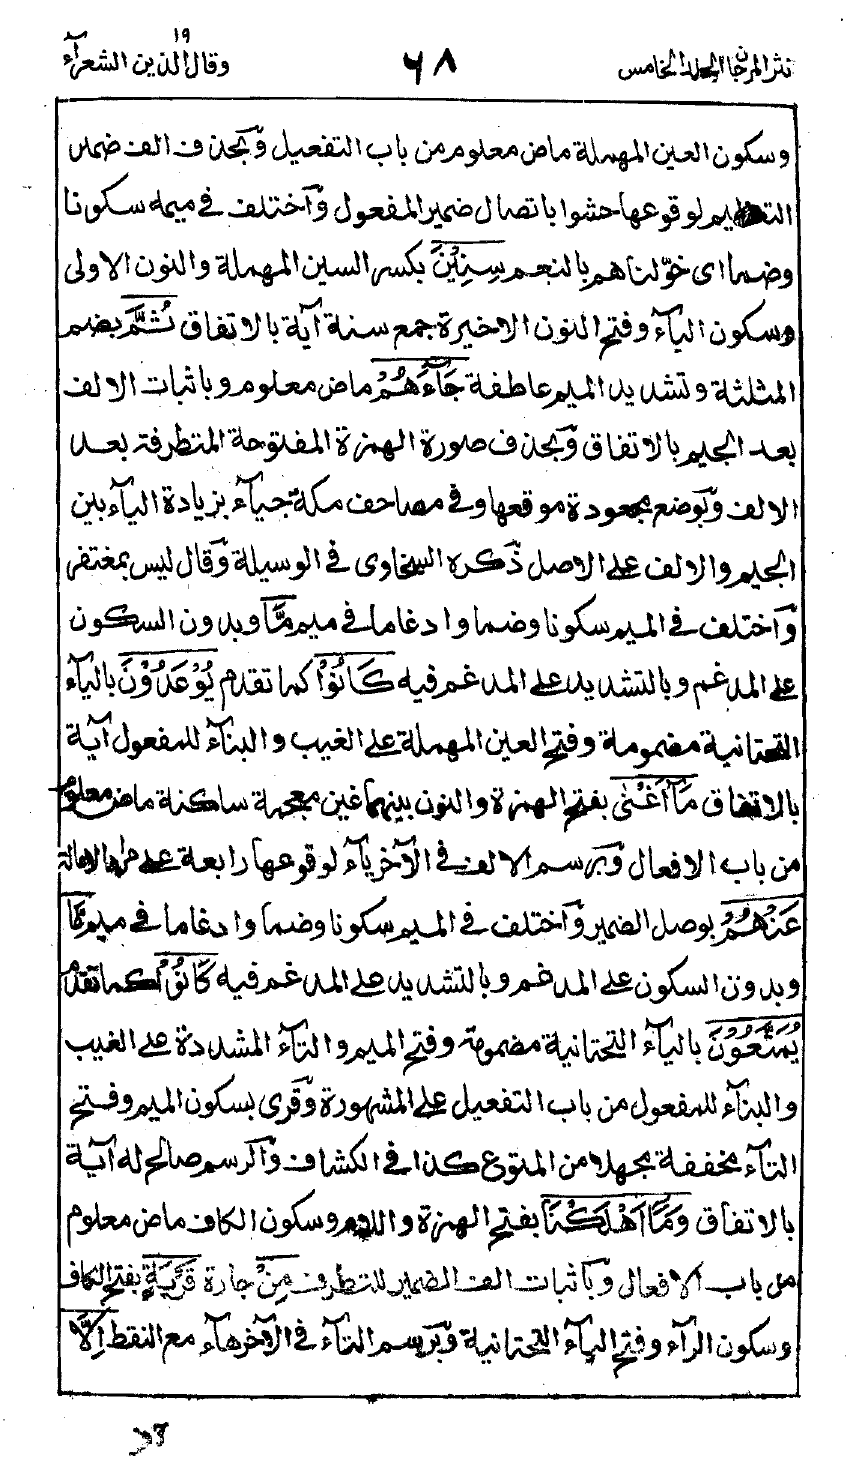 نثر المرجان الجلد الخامس ٦٨ وقال الذين الشعرآء ١٩
وسكون العين المهملة ماض معلوم من باب التفعيل وَبحذف الف ضمير
التعظيم لوقوعها حشوا باتصال ضمير المفعول وَآختلف فى ميمه سكونا
وضما اى خوّلناهم بالنعم سِنِيْنَ بكسر السين المهملة والنون الاولى
وسكون اليآء وفتح النون الاخيرة جمع سنة آية بالاتفاق ثُمَّ بضم
المثلثة وتشديد الميم عاطفة جَآءَهُمْ ماض معلوم وباثبات الالف
بعد الجيم بالاتفاق وَبحذف صورة الهمزة المفتوحة المتطرفة بعد
الالف وَبوضع مجعودة موقعها وفى مصاحف مكة جيآء بزيادة اليآء بين
الجيم والالف على الاصل ذَكره السخاوى فى الوسيلة وَقال ليس بمغتفر
وَآختلف فى الميم سكونا وضما وادغاما فى ميم مَّا وبدون السكون
على المدغم وبالتشديد على المدغم فيه كَانُوْا كما تقدم يُوْعَدُوْنَ باليآء
التحتانية مضمومة وفتح العين المهملة على الغيب والبنآء للمفعول آية
بالاتفاق مَآ اَغْنٰى بفتح الهمزة والنون بينهما غين معجمة ساكنة ماض معلوم
من باب الافعال وَبرسم الالف فى الآخر يآء لوقوعها رابعة على مراد الامالة
عَنْهُمْ بوصل الضمير وَآختلف فى الميم سكونا وضما وادغاما فى ميم مَّا
وبدون السكون على المدغم وبالتشديد على المدغم فيه كَانُوْا كما تقدم
يُمَتَّعُوْنَ باليآء التحتانية مضمومة وفتح الميم والتآء المشددة على الغيب
والبنآء للمفعول من باب التفعيل على المشهورة وَقرى بسكون الميم وفتح
التآء مخففة مجهلا من المتوع كذا فى الكشاف وَآلرسم صالح له آية
بالاتفاق وَمَآ اَهْلَكْنَا بفتح الهمزة واللام وسكون الكاف ماض معلوم
من باب الافعال وَباثبات الف الضمير للتطرف مِنْ جارة قَرْيَةٍ بفتح القاف
وسكون الرآء وفتح اليآء التحتانية وَبرسم التآء فى الآخر هآء مع النقط اِلَّا